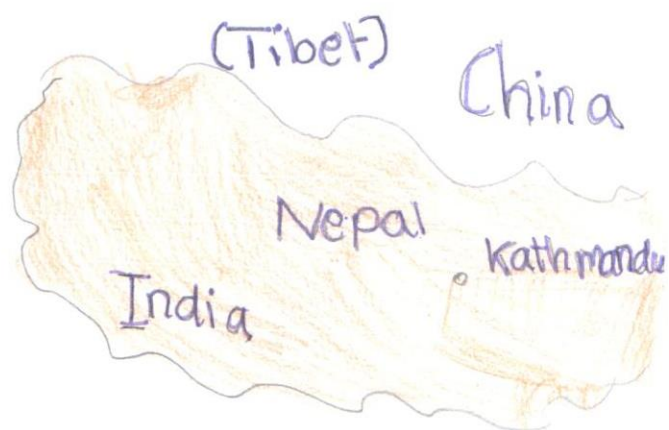 (Tibet)
China
Nepal
Kathmandu
India